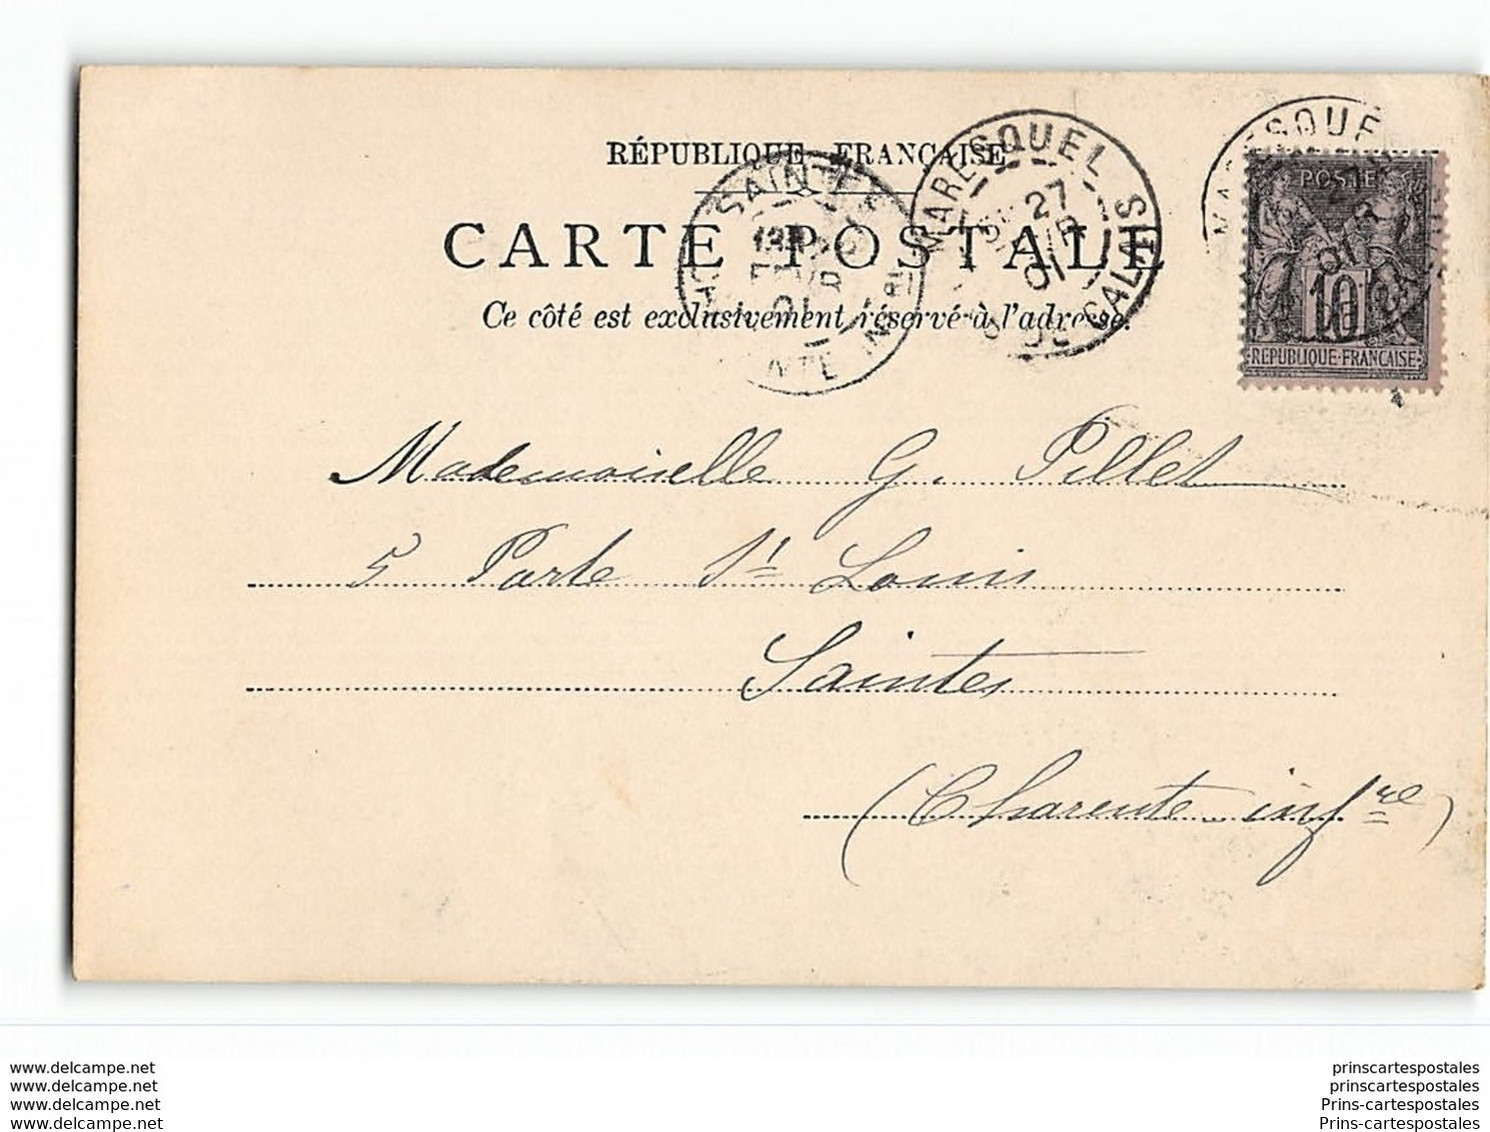 RÉPUBLIQUE FRANÇAISE
CARTE POSTALE
Ce côté est exclusivement réservé à l'adresse.
SAINTES
CHTE INFRE
MARESQUEL
27
01
PAS DE CALAIS
MARESQUEL
01
POSTES
10
RÉPUBLIQUE FRANÇAISE
Mademoiselle G. Pillet
5 Porte St Louis
Saintes
(Charente-infre)
www.delcampe.net
www.delcampe.net
www.delcampe.net
www.delcampe.net
prinscartespostales
prinscartespostales
Prins-cartespostales
Prins-cartespostales